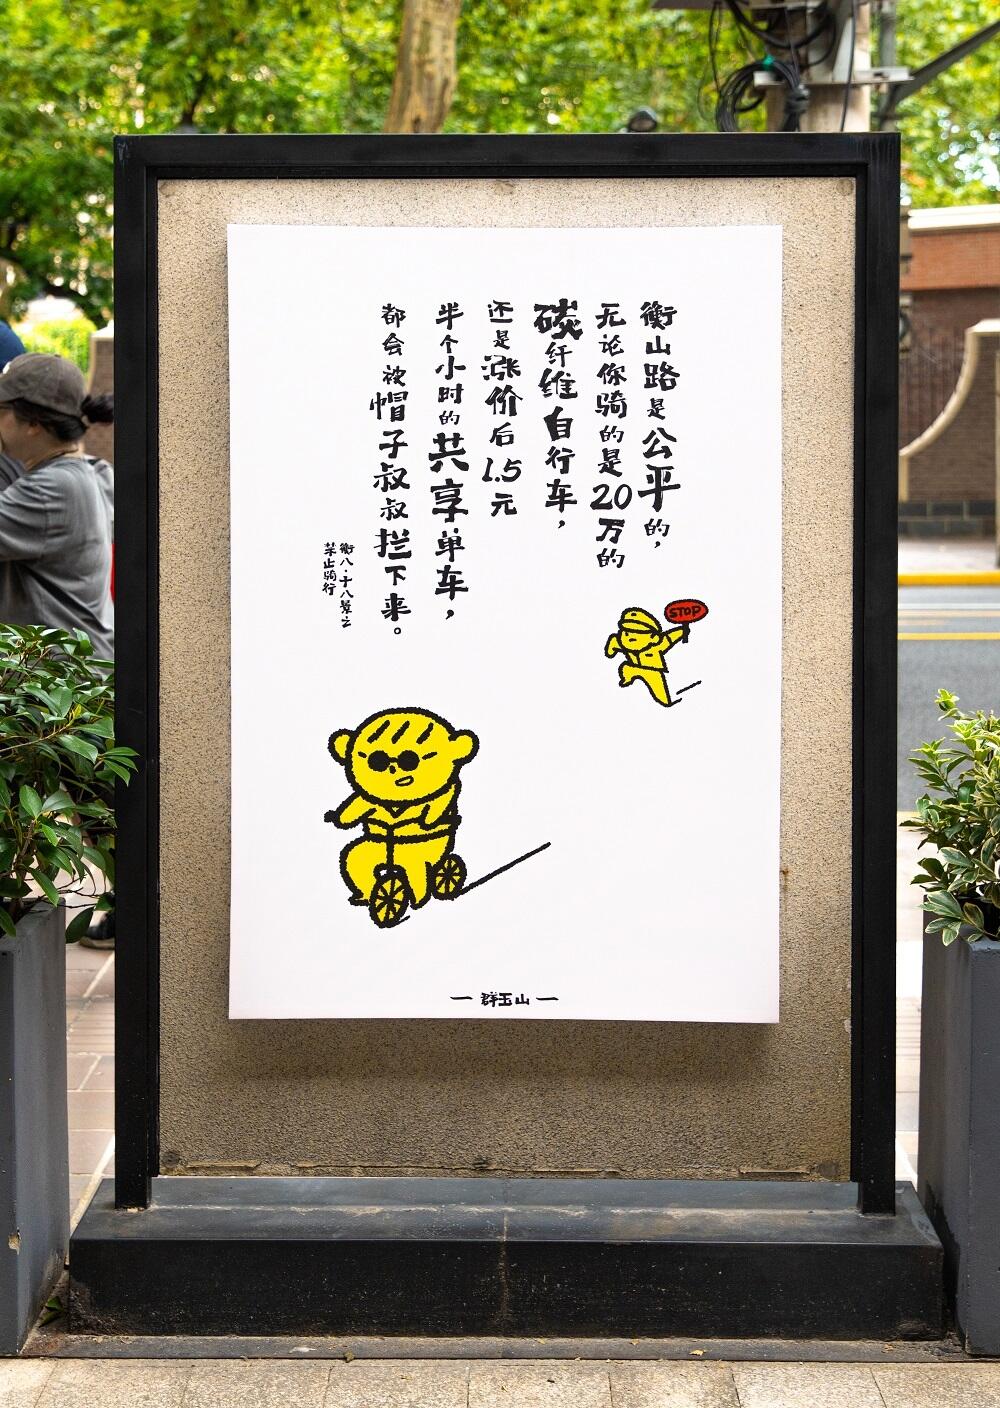 衡山路是公平的，
无论你骑的是20万的
碳纤维自行车，
还是涨价后1.5元
半个小时的共享单车，
都会被帽子叔叔拦下来。
衡八·十八景之
禁止骑行
STOP
群玉山